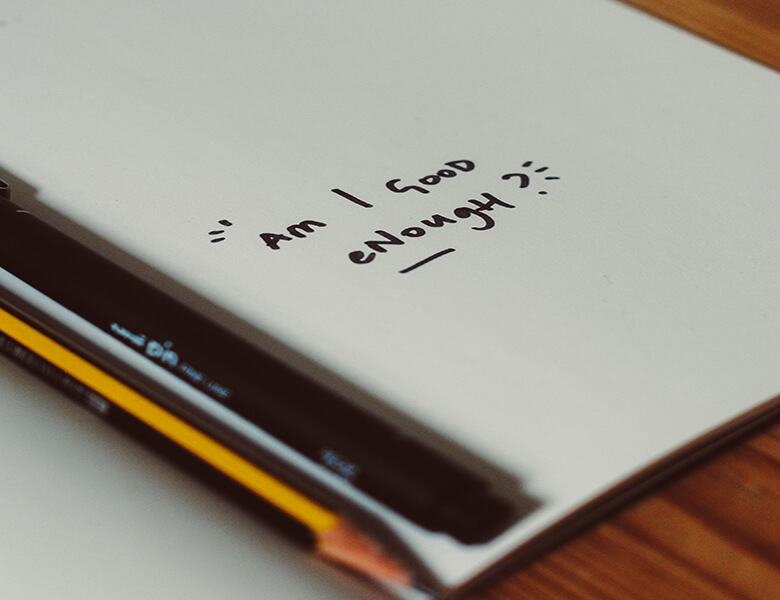 "Am I GooD
eNougH ?"